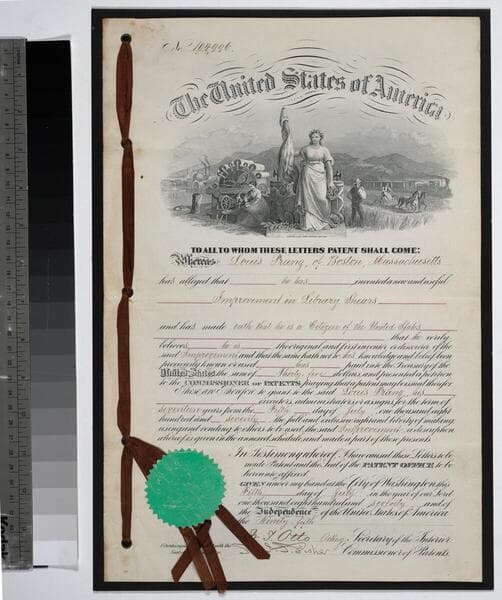 No. 104,996.
The United States of America
TO ALL TO WHOM THESE LETTERS PATENT SHALL COME:
Whereas Louis Prang, of Boston, Massachusetts
has alleged that he has invented a new and useful
Improvement in Library Shears
and has made oath that he is a Citizen of the United States
that he verily
believes he is the original and first inventor or discoverer of the
said Improvement and that the same hath not to his knowledge and belief been
previously known or used has paid into the Treasury of the
United States the sum of Thirty five dollars, and presented a petition
to the COMMISSIONER OF PATENTS, praying that a patent may be issued therefor
These are therefore to grant to the said Louis Prang, his
executors, administrators or assigns for the term of
seventeen years from the Fifth day of July, one thousand eight
hundred and seventy the full and exclusive right and liberty of making,
using and vending to others to be used, the said Improvement, a description
whereof is given in the annexed schedule, and made a part of these presents.
In Testimony whereof I have caused these Letters to be
made Patent and the Seal of the PATENT OFFICE to be
hereunto affixed.
GIVEN under my hand at the City of Washington this
Fifth day of July in the year of our Lord
one thousand eight hundred and seventy and of
the Independence of the United States of America
the Ninety fifth
Acting Secretary of the Interior
Commissioner of Patents.
Kodak